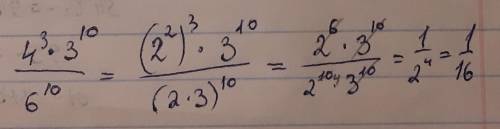 4³·3¹⁰/6¹⁰ = (2²)³·3¹⁰/(2·3)¹⁰ = 2⁶·3¹⁰/2¹⁰·3¹⁰ = 1/2⁴ = 1/16